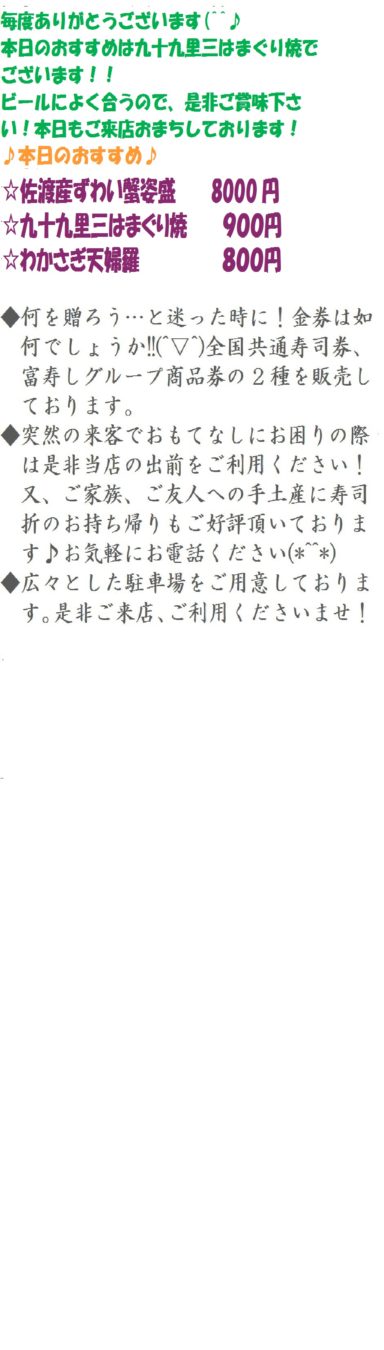 毎度ありがとうございます(^^♪
本日のおすすめは九十九里三はまぐり焼で
ございます！！
ビールによく合うので、是非ご賞味下さ
い！本日もご来店おまちしております！
♪本日のおすすめ♪
☆佐渡産ずわい蟹姿盛　8000円
☆九十九里三はまぐり焼　900円
☆わかさぎ天婦羅　800円
◆何を贈ろう…と迷った時に！金券は如
何でしょうか!!(^▽^)全国共通寿司券、
富寿しグループ商品券の２種を販売し
ております。
◆突然の来客でおもてなしにお困りの際
は是非当店の出前をご利用ください！
又、ご家族、ご友人への手土産に寿司
折のお持ち帰りもご好評頂いておりま
す♪お気軽にお電話ください(*^^*)
◆広々とした駐車場をご用意しておりま
す。是非ご来店、ご利用くださいませ！